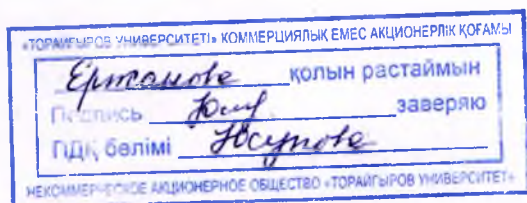 «ТОРАЙҒЫРОВ УНИВЕРСИТЕТІ» КОММЕРЦИЯЛЫҚ ЕМЕС АКЦИОНЕРЛІК ҚОҒАМЫ
Ертанова қолын растаймын
Подпись заверяю
ПДҚ бөлімі Юсупова
НЕКОММЕРЧЕСКОЕ АКЦИОНЕРНОЕ ОБЩЕСТВО «ТОРАЙГЫРОВ УНИВЕРСИТЕТ»